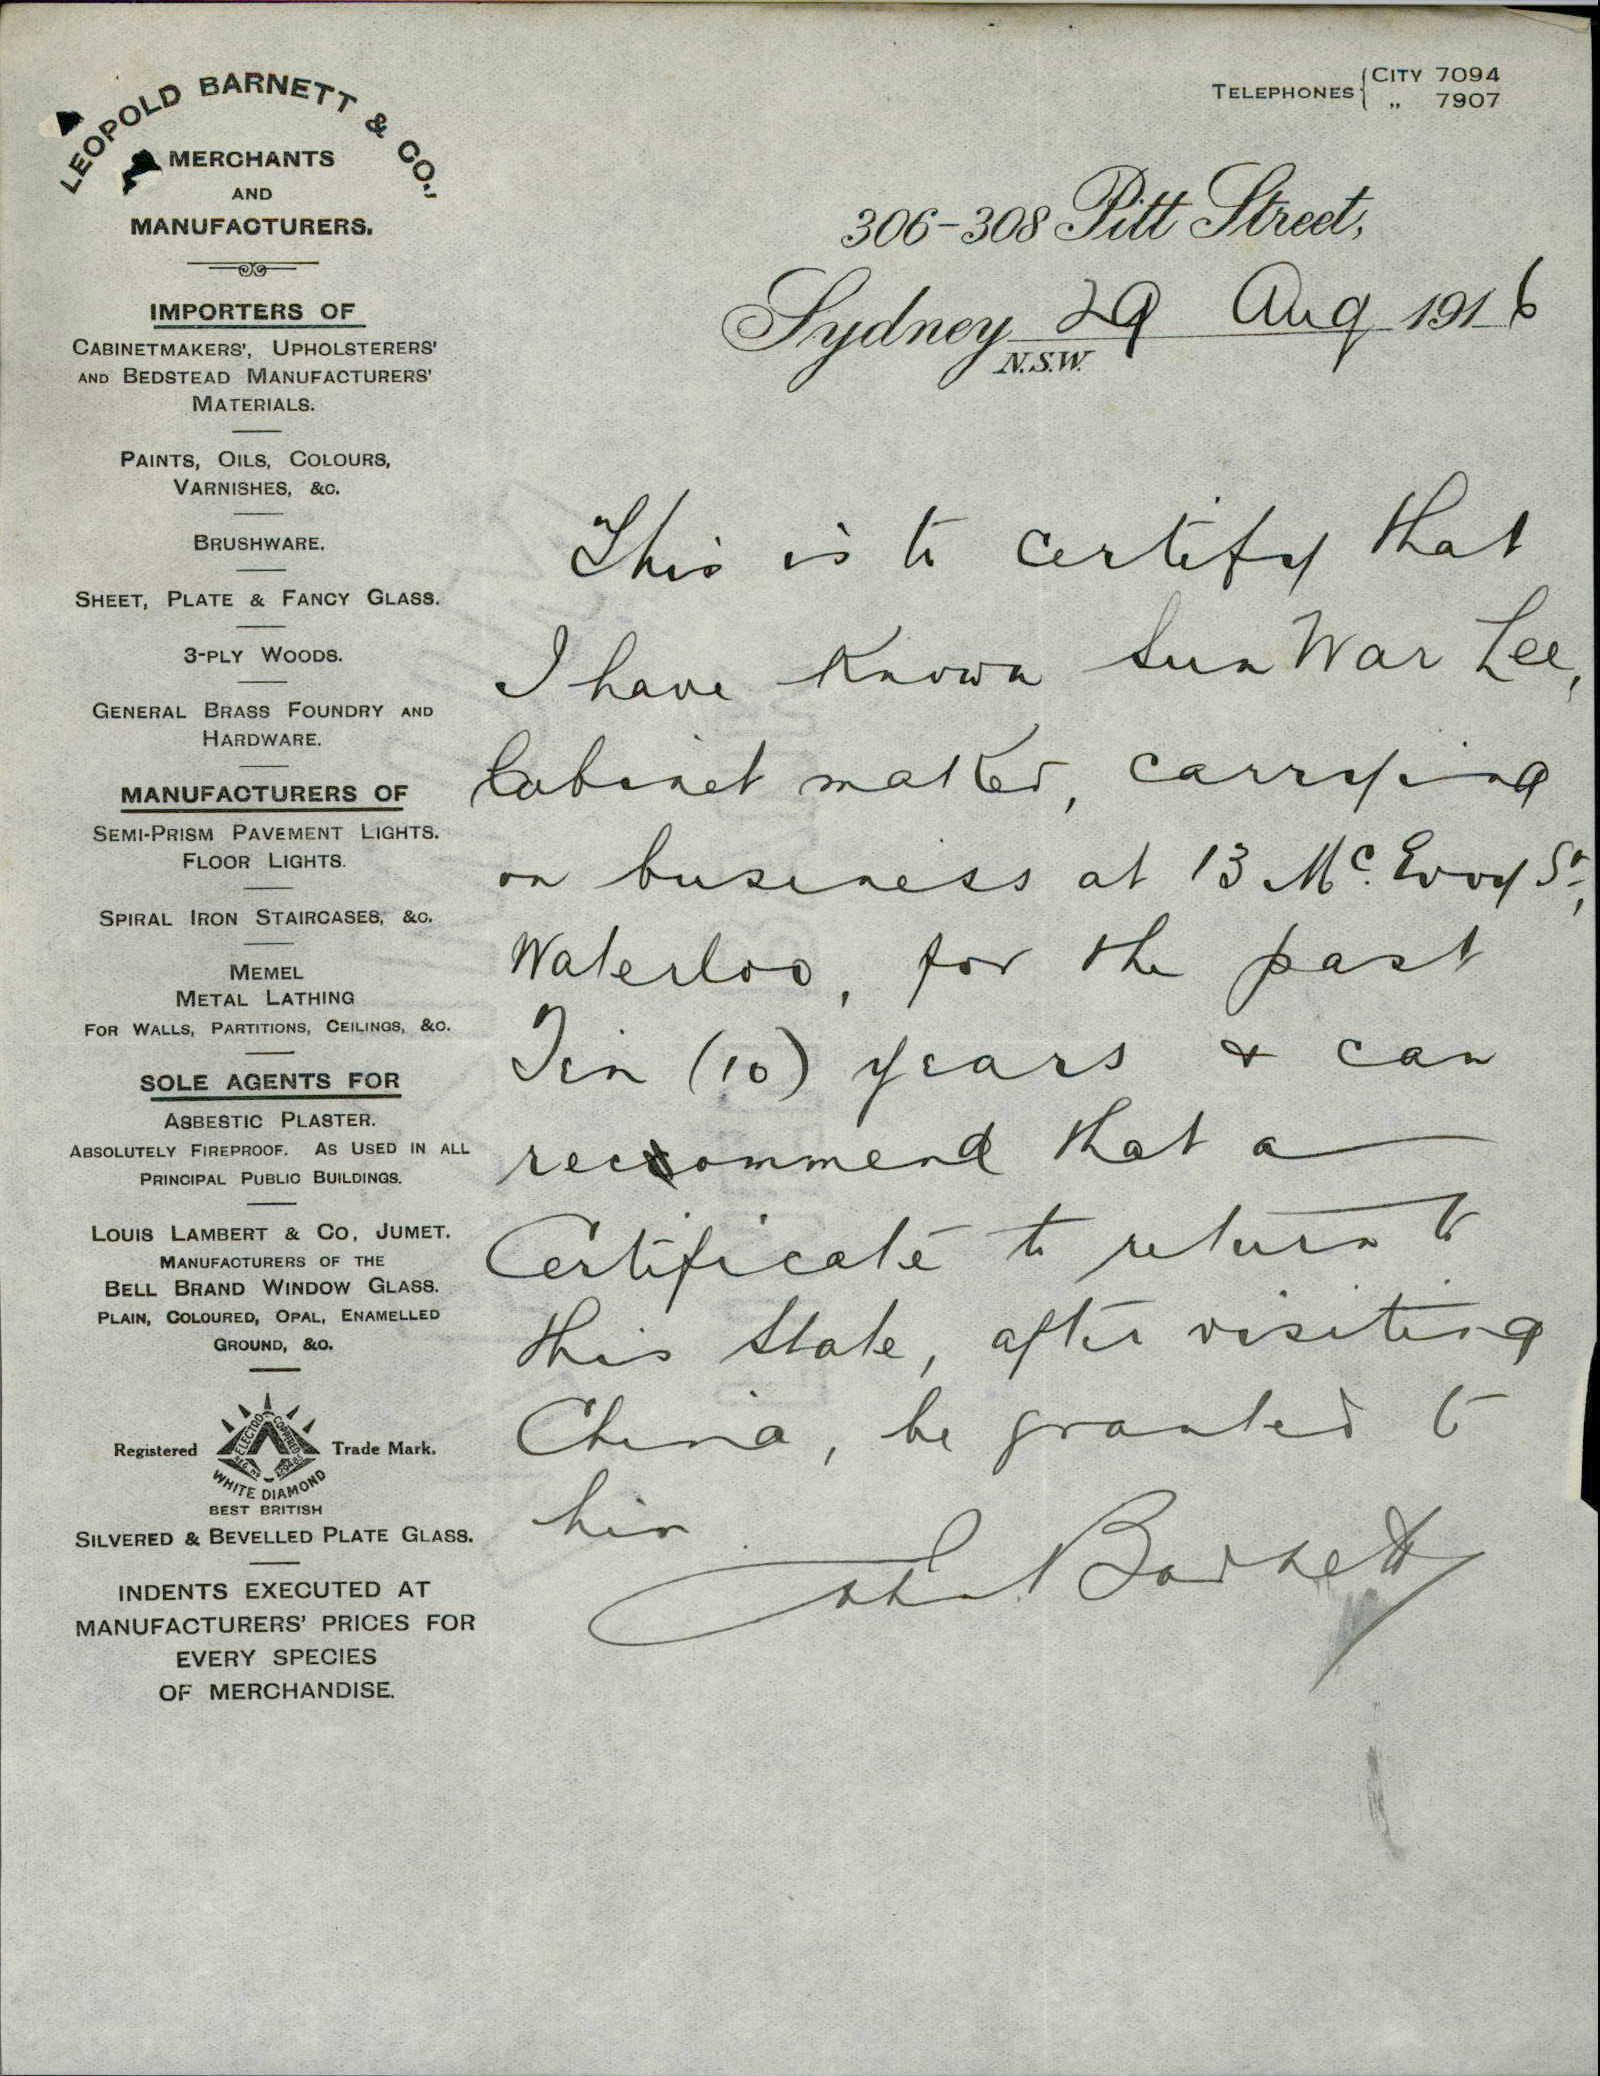 LEOPOLD BARNETT & CO.,
MERCHANTS
AND
MANUFACTURERS.
IMPORTERS OF
CABINETMAKERS', UPHOLSTERERS'
AND BEDSTEAD MANUFACTURERS'
MATERIALS.
PAINTS, OILS, COLOURS,
VARNISHES, &C.
BRUSHWARE.
SHEET, PLATE & FANCY GLASS.
3-PLY WOODS.
GENERAL BRASS FOUNDRY AND
HARDWARE.
MANUFACTURERS OF
SEMI-PRISM PAVEMENT LIGHTS.
FLOOR LIGHTS.
SPIRAL IRON STAIRCASES, &C.
MEMEL
METAL LATHING
FOR WALLS, PARTITIONS, CEILINGS, &C.
SOLE AGENTS FOR
ASBESTIC PLASTER.
ABSOLUTELY FIREPROOF. AS USED IN ALL
PRINCIPAL PUBLIC BUILDINGS.
LOUIS LAMBERT & CO, JUMET.
MANUFACTURERS OF THE
BELL BRAND WINDOW GLASS.
PLAIN, COLOURED, OPAL, ENAMELLED
GROUND, &C.
Registered
ELECTRO COPPERED
WHITE DIAMOND
Trade Mark.
BEST BRITISH
SILVERED & BEVELLED PLATE GLASS.
INDENTS EXECUTED AT
MANUFACTURERS' PRICES FOR
EVERY SPECIES
OF MERCHANDISE.
TELEPHONES { CITY 7094
„ 7907
306-308 Pitt Street,
Sydney 29 Aug 1916
N.S.W.
This is to certify that
I have Known Sun War Lee,
Cabinet maker, carrying
on business at 13 Mc. Evoy St,
Waterloo, for the past
Ten (10) years & can
recommend that a
Certificate to return to
this State, after visiting
China, be granted to
him
John Barnett